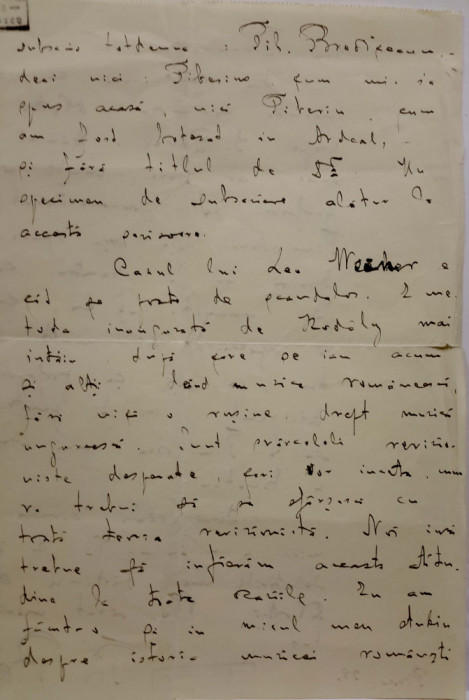 subscris totdeauna : Tib. Brediceanu,
deci nici : Tiberiu, cum mi s'a
spus acasă, nici Tiberiu, cum
am fost botezat în Ardeal,
și fără titlul de Dr. Un
specimen de subscriere alătur la
această scrisoare.
Cazul lui Leo Weiner e
cât se poate de scandalos. E me-
toda inaugurată de Kodály mai
întâiu după care se iau acum
și alții. Dând muzica românească,
fără nici o rușine, drept muzică
ungurească. Sunt svârcoliri revizio-
niste desperate, cari vor înceta, cum
va trebui să se sfârșească cu
toată teoria revizionistă. Noi însă
trebue să înfierăm această atitu-
dine la toate ocaziile. Eu am
făcut-o și în micul meu studiu
despre istoria muzicei românești